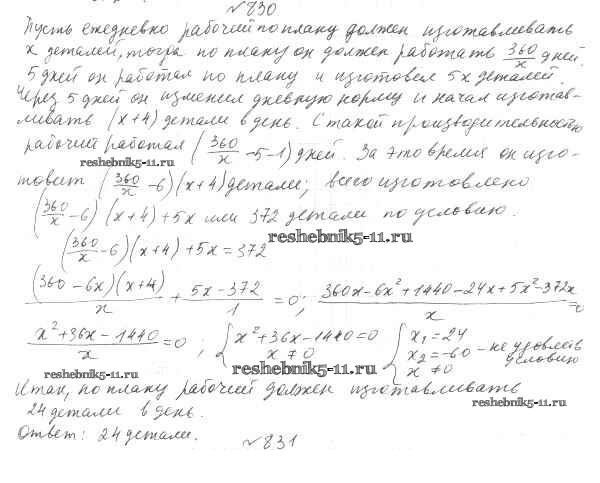 №830
Пусть ежедневно рабочий по плану должен изготавливать
x деталей, тогда по плану он должен работать 360/x дней.
5 дней он работал по плану и изготовил 5x деталей.
Через 5 дней он изменил дневную норму и начал изготав-
ливать (x+4) детали в день. С такой производительностью
рабочий работал (360/x -5-1) дней. За это время он изго-
reshebnik5-11.ru
товит (360/x -6)(x+4) детали; всего изготовлено
(360/x -6)(x+4)+5x или 372 детали по условию.
reshebnik5-11.ru
(360/x -6)(x+4)+5x=372
(360-6x)(x+4)/x + 5x-372/1 =0; 360x-6x²+1440-24x+5x²-372x/x =0
x²+36x-1440/x =0; { x²+36x-1440=0 x≠0 { x₁=24 x₂=-60 - не удовлетв условию x≠0
reshebnik5-11.ru
reshebnik5-11.ru
Итак, по плану рабочий должен изготавливать
reshebnik5-11.ru
24 детали в день.
Ответ: 24 детали.
№831